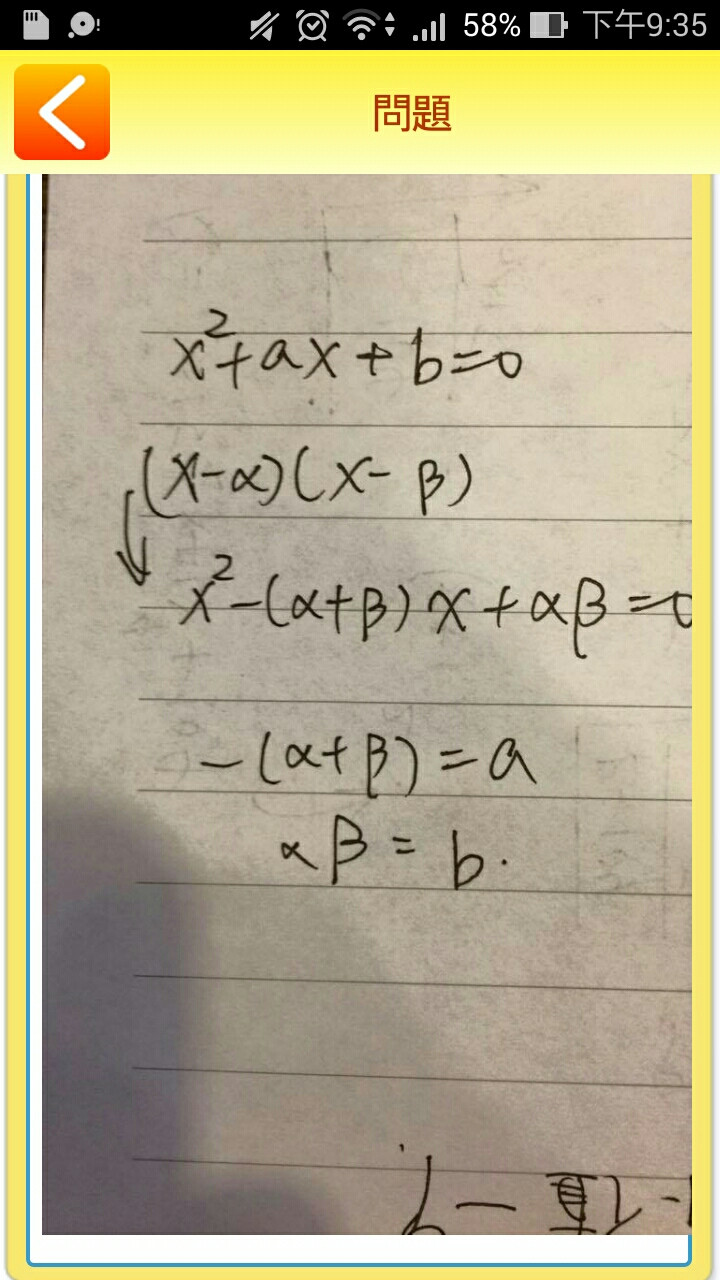 58% 下午9:35
問題
x²+ax+b=0
(x-α)(x-β)
x²-(α+β)x+αβ=0
-(α+β)=a
αβ=b.